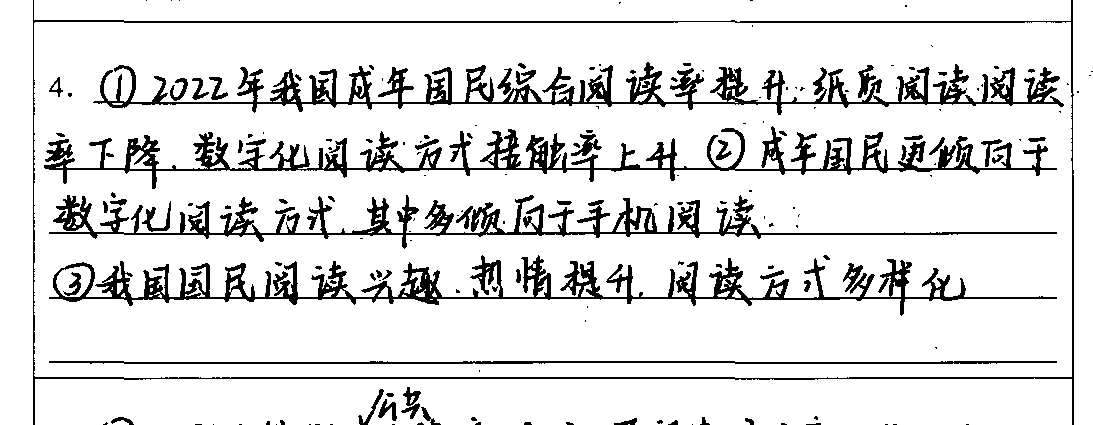 4. ①2022年我国成年国民综合阅读率提升,纸质阅读阅读
率下降,数字化阅读方式接触率上升.②成年国民更倾向于
数字化阅读方式,其中多倾向于手机阅读.
③我国国民阅读兴趣.热情提升,阅读方式多样化
公共